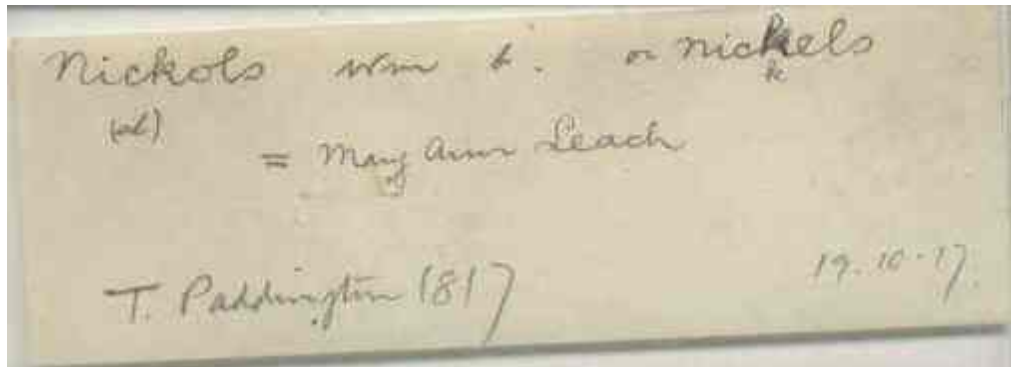 Nickols Wm b. or Nickels
k
(el)
= Mary Ann Leach
T. Paddington 1817
19.10.17.